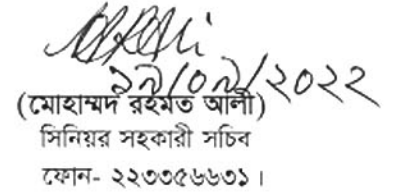 ১৯/০৯/২০২২
(মোহাম্মদ রহমত আলী)
সিনিয়র সহকারী সচিব
ফোন- ২২৩৩৫৬৬৩১ ।